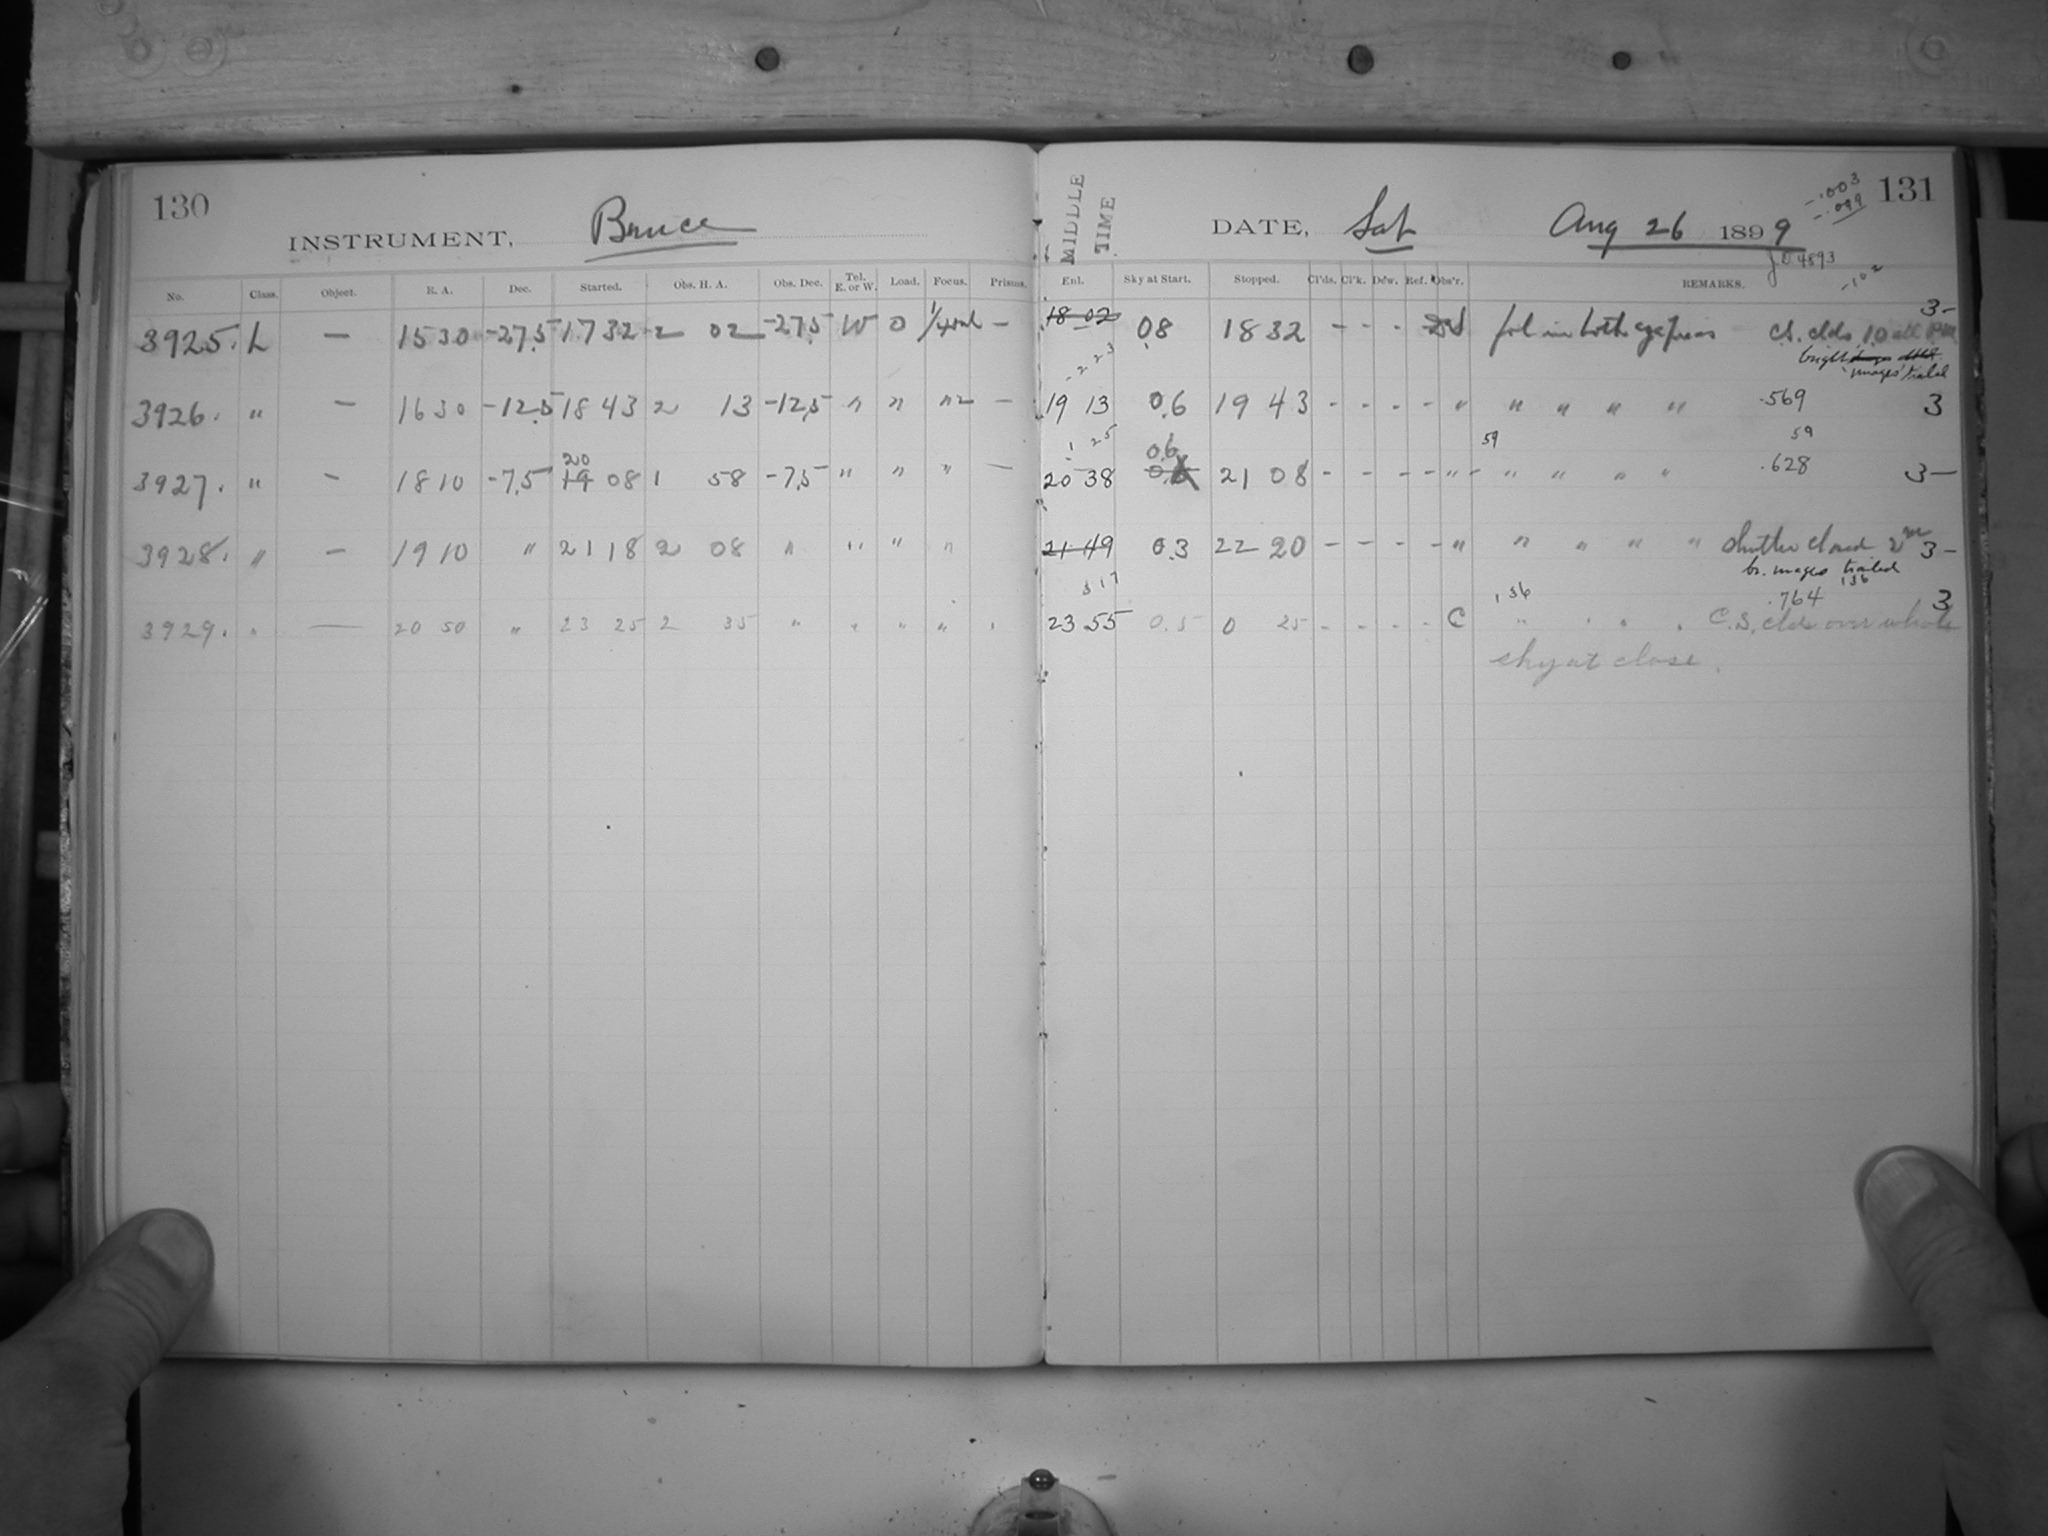 130
INSTRUMENT, Bruce
MIDDLE TIME
DATE, Sat Aug 26 1899
-.003
-.099
131
JD 4893
-102
No. Class. Object. R. A. Dec. Started. Obs. H. A. Obs. Dec. Tel. E. or W. Load. Focus. Prisms. Enl. Sky at Start. Stopped. Cl'ds. Cl'k. Dew. Ref. Obs'r. REMARKS.
3925. L — 15 30 -27.5 17 32 2 02 -27.5 W 0 — 18 02 0.8 18 32 - - - - fol in both eyepieces C.S. clds 10 3-
bright
images trailed
-223
3926. " — 16 30 -12.5 18 43 2 13 -12.5 " " " — 19 13 0.6 19 43 - - - - " " " " " .569 3
1 25 0.6 59 59
20
3927. " - 18 10 -7.5 19 08 1 58 -7.5 " " " — 20 38 21 08 - - - - " " " " " .628 3-
3928. " - 19 10 " 21 18 2 08 " " " " 21 49 0.3 22 20 - - - - " " " " " shutter closed 2m 3-
br. images trailed
317 136 .764 136
3929. " — 20 50 " 23 25 2 35 " " " " 23 55 0.5 0 25 - - - - C " " " " C.S. clds over whole 3
sky at close.